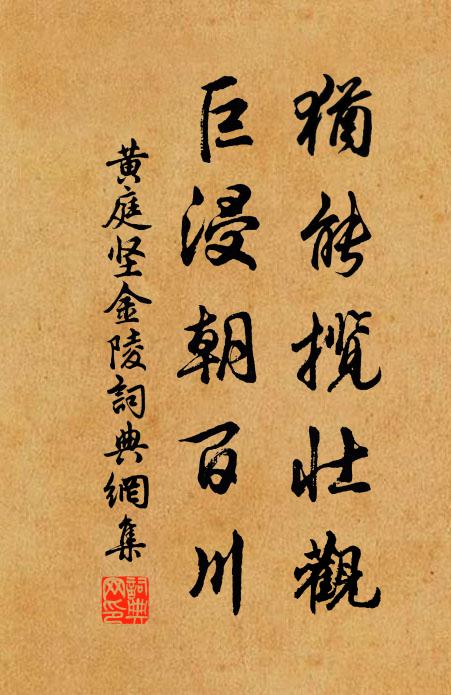 猶能攬壯觀
巨浸朝百川
黄庭坚金陵詞典網集
詞典
网印